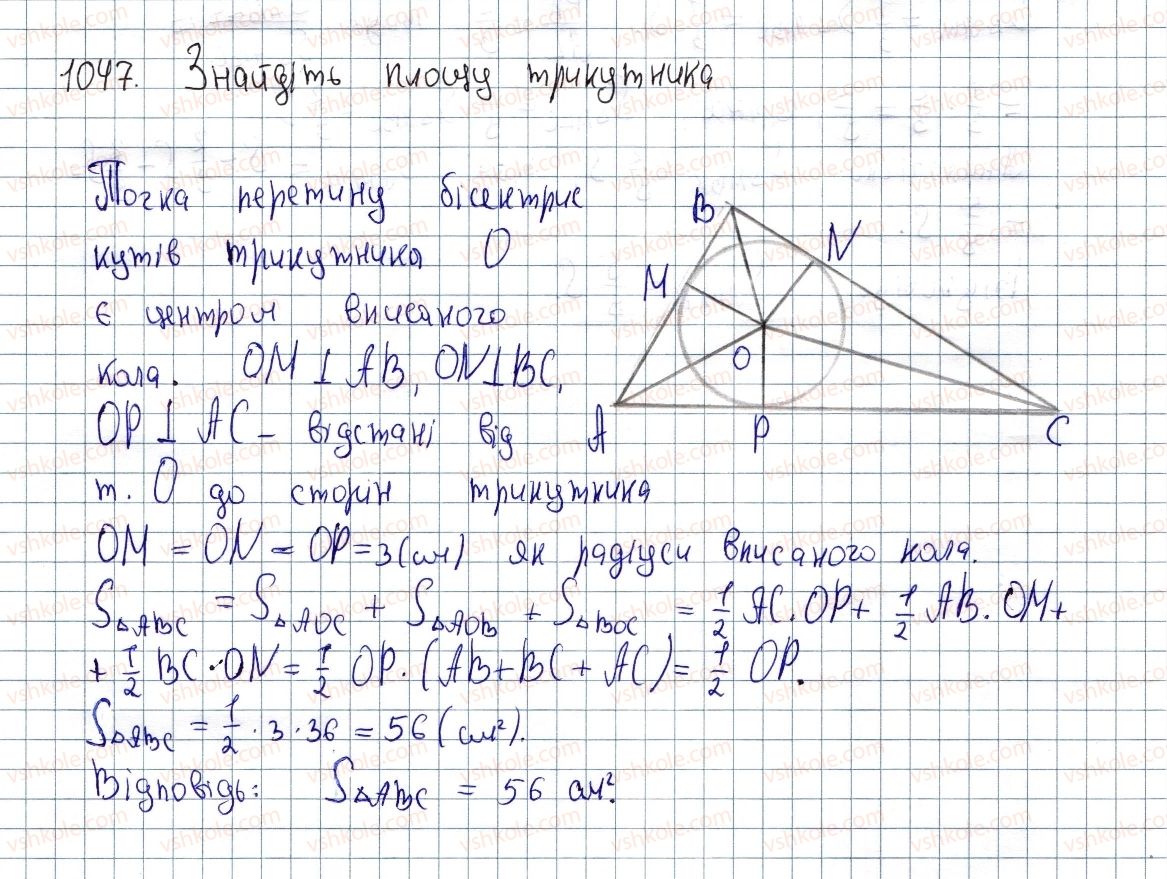 1047. Знайдіть площу трикутника
Точка перетину бісектрис
кутів трикутника O
є центром вписаного
кола. OM ⊥ AB, ON ⊥ BC,
OP ⊥ AC – відстані від
т. O до сторін трикутника
OM = ON = OP = 3 (см) як радіуси вписаного кола.
S△ABC = S△AOC + S△AOB + S△BOC = 1/2 AC · OP + 1/2 AB · OM +
+ 1/2 BC · ON = 1/2 OP · (AB + BC + AC) = 1/2 OP.
S△ABC = 1/2 · 3 · 36 = 56 (см²).
Відповідь: S△ABC = 56 см².
B
N
M
O
A
P
C